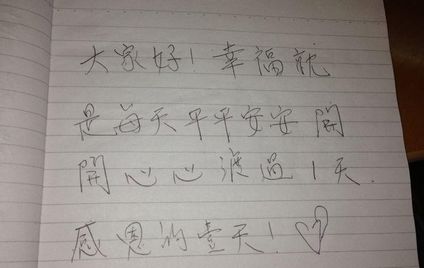 大家好！幸福就
是每天平平安安開
開心心渡過1天.
感恩的壹天！♡